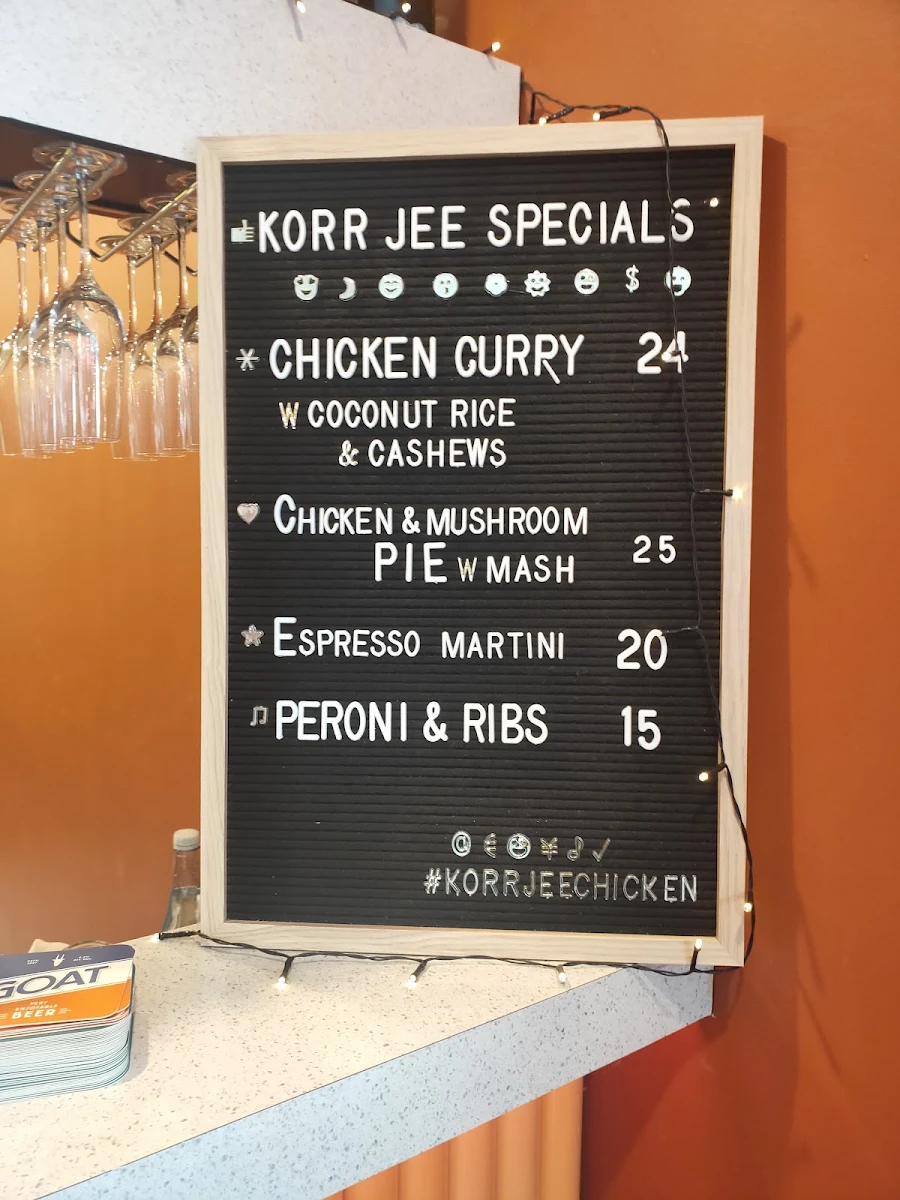 KORR JEE SPECIALS
$
CHICKEN CURRY 24
W COCONUT RICE
& CASHEWS
CHICKEN & MUSHROOM
PIE W MASH 25
ESPRESSO MARTINI 20
PERONI & RIBS 15
@ € ¥
#KORRJEECHICKEN
GOAT
VERY
ENJOYABLE
BEER